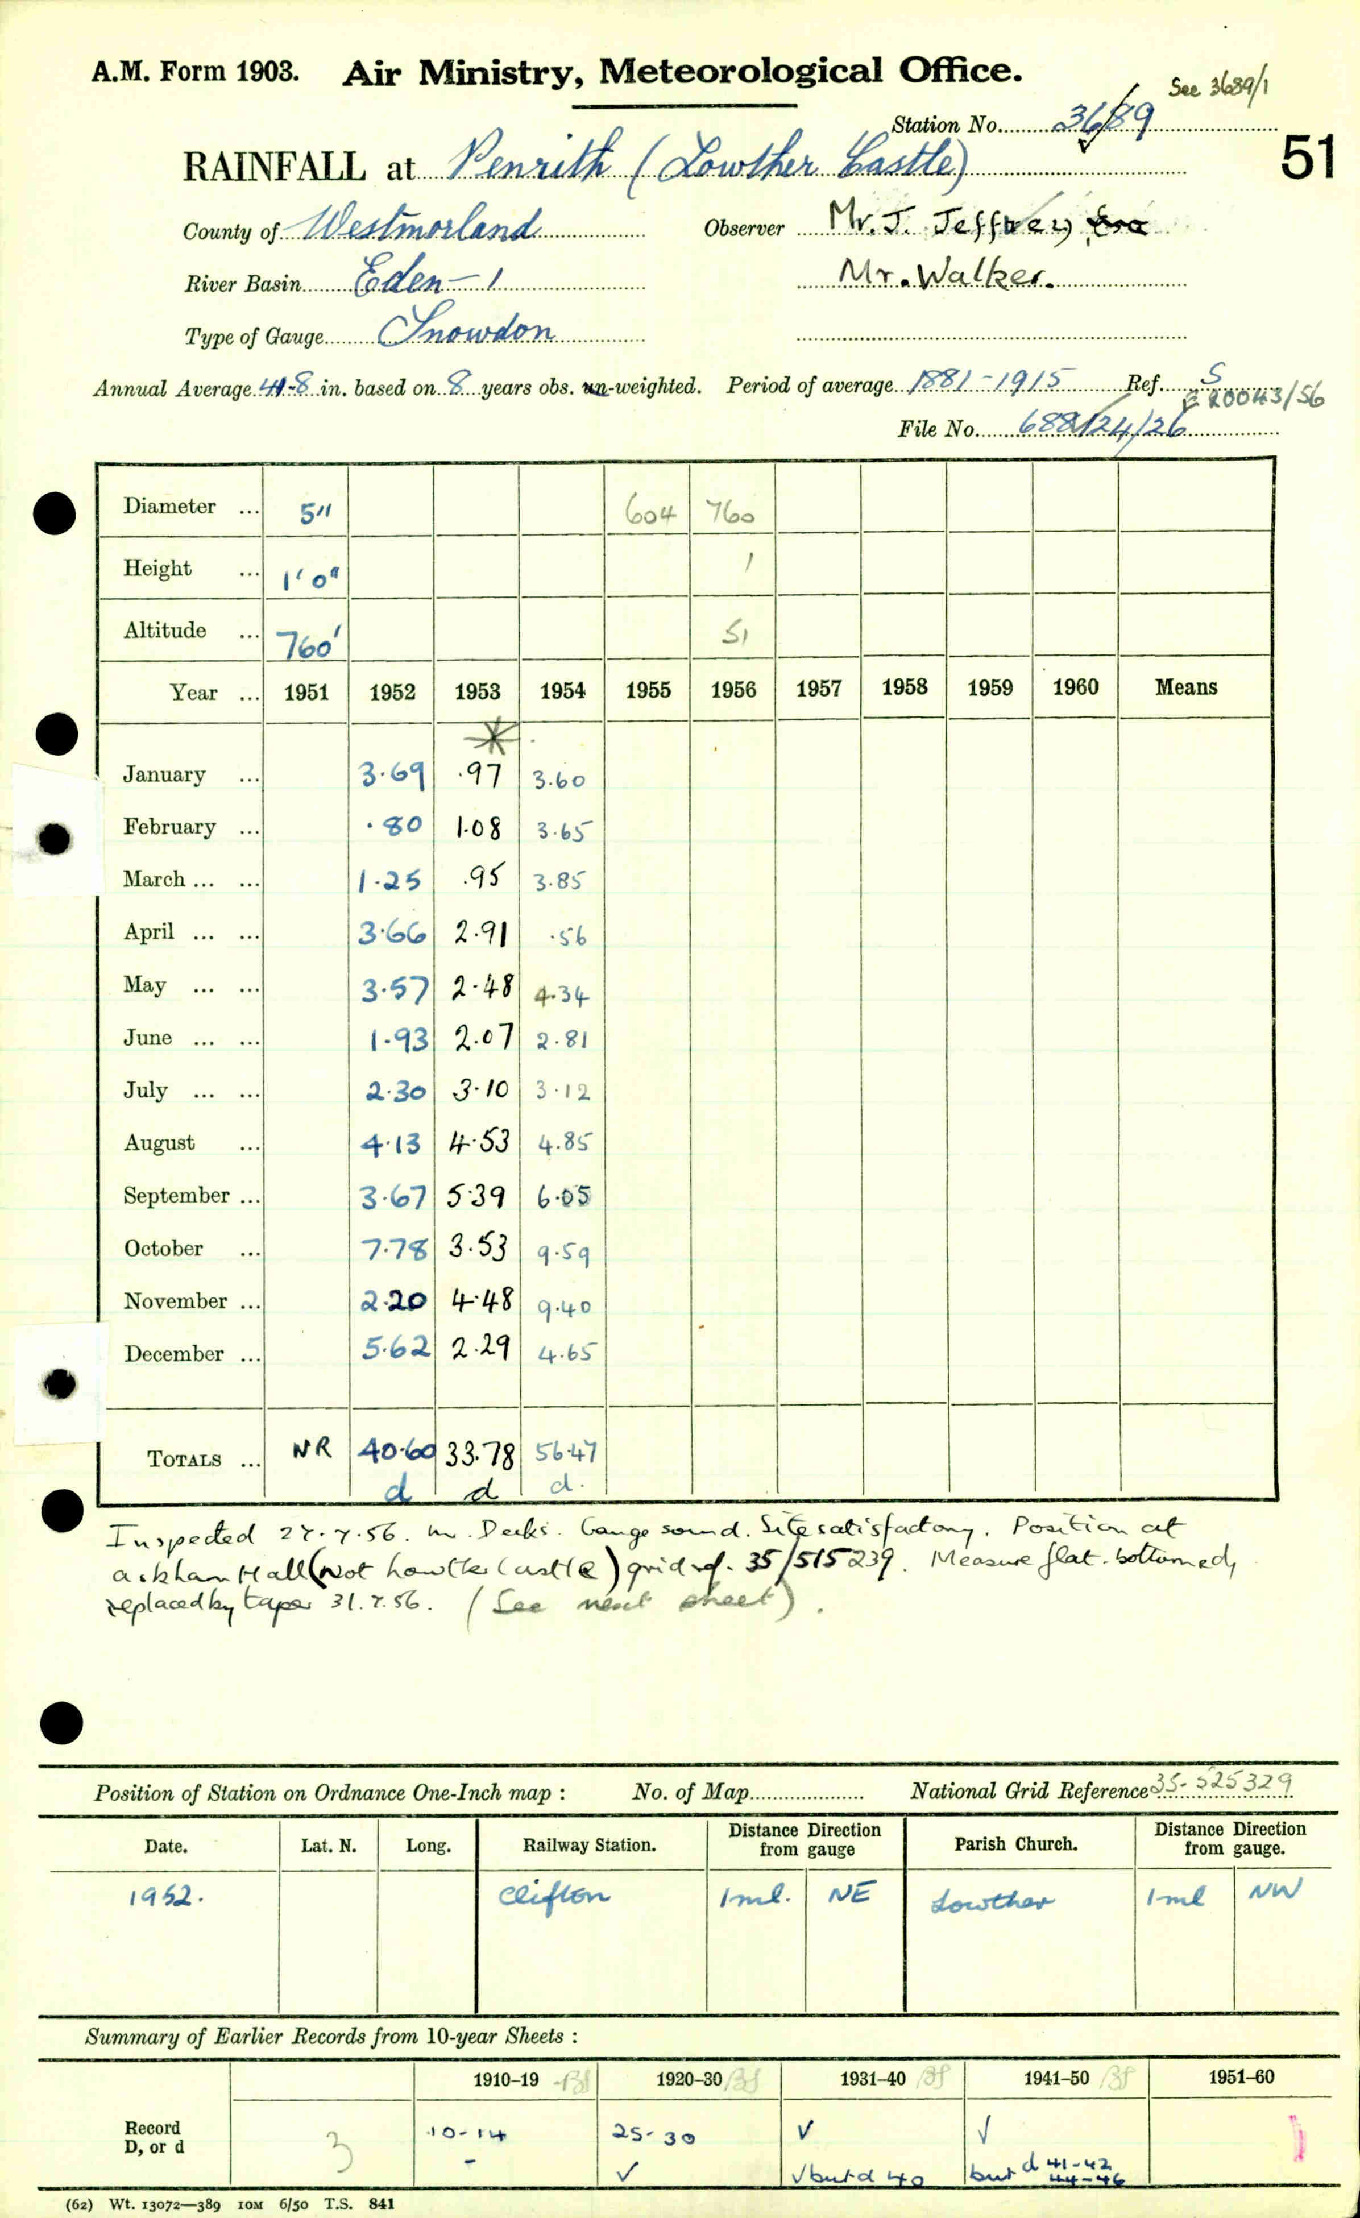 See 3689/1
A.M. Form 1903. Air Ministry, Meteorological Office.
Station No. 3689
51
RAINFALL at Penrith (Lowther Castle)
County of Westmorland Observer Mr. J. Jeffrey, Esq
River Basin Eden-1 Mr. Walker.
Type of Gauge Snowdon
Annual Average 41-8 in. based on 8 years obs. un-weighted. Period of average 1881-1915 Ref. S
20043/56
File No. 688124/26
Diameter ... 5" 604 760
Height ... 1'0" 1
Altitude ... 760' 51
Year ... 1951 1952 1953 1954 1955 1956 1957 1958 1959 1960 Means
*
January ... 3.69 .97 3.60
February ... .80 1.08 3.65
March ... ... 1.25 .95 3.85
April ... ... 3.66 2.91 .56
May ... ... 3.57 2.48 4.34
June ... ... 1.93 2.07 2.81
July ... ... 2.30 3.10 3.12
August ... 4.13 4.53 4.85
September ... 3.67 5.39 6.05
October ... 7.78 3.53 9.59
November ... 2.20 4.48 9.40
December ... 5.62 2.29 4.65
TOTALS ... NR 40.60 33.78 56.47
d d d.
Inspected 27.7.56. Mr. Gauge sound. Site satisfactory. Position at
Askham Hall (Not Lowther Castle) grid ref. 35/515239. Measure flat-bottomed,
replaced by taper 31.7.56. (See next sheet).
Position of Station on Ordnance One-Inch map : No. of Map National Grid Reference 35-525329
Date. Lat. N. Long. Railway Station. Distance Direction from gauge Parish Church. Distance Direction from gauge.
1952. Clifton 1 ml. NE Lowther 1 ml NW
Summary of Earlier Records from 10-year Sheets :
1910-19 1920-30 1931-40 1941-50 1951-60
Record 3 10-14 25-30 √ √
D, or d - √ √ but d 40 but d 41-42
44-46
(62) Wt. 13072—389 10M 6/50 T.S. 841